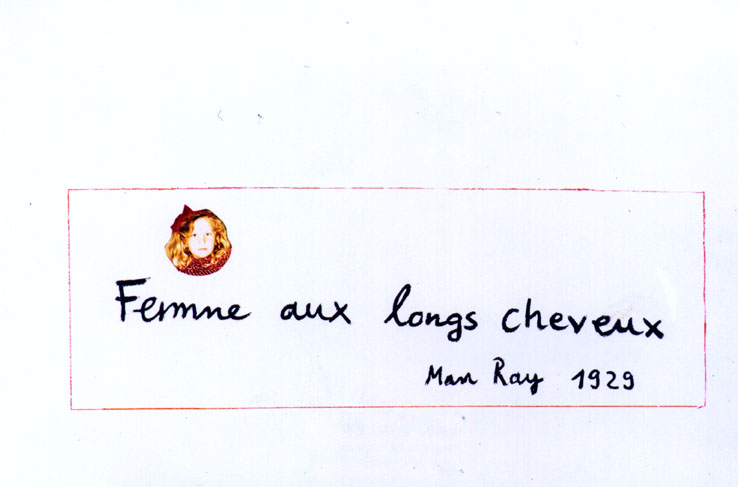 Femme aux longs cheveux
Man Ray 1929